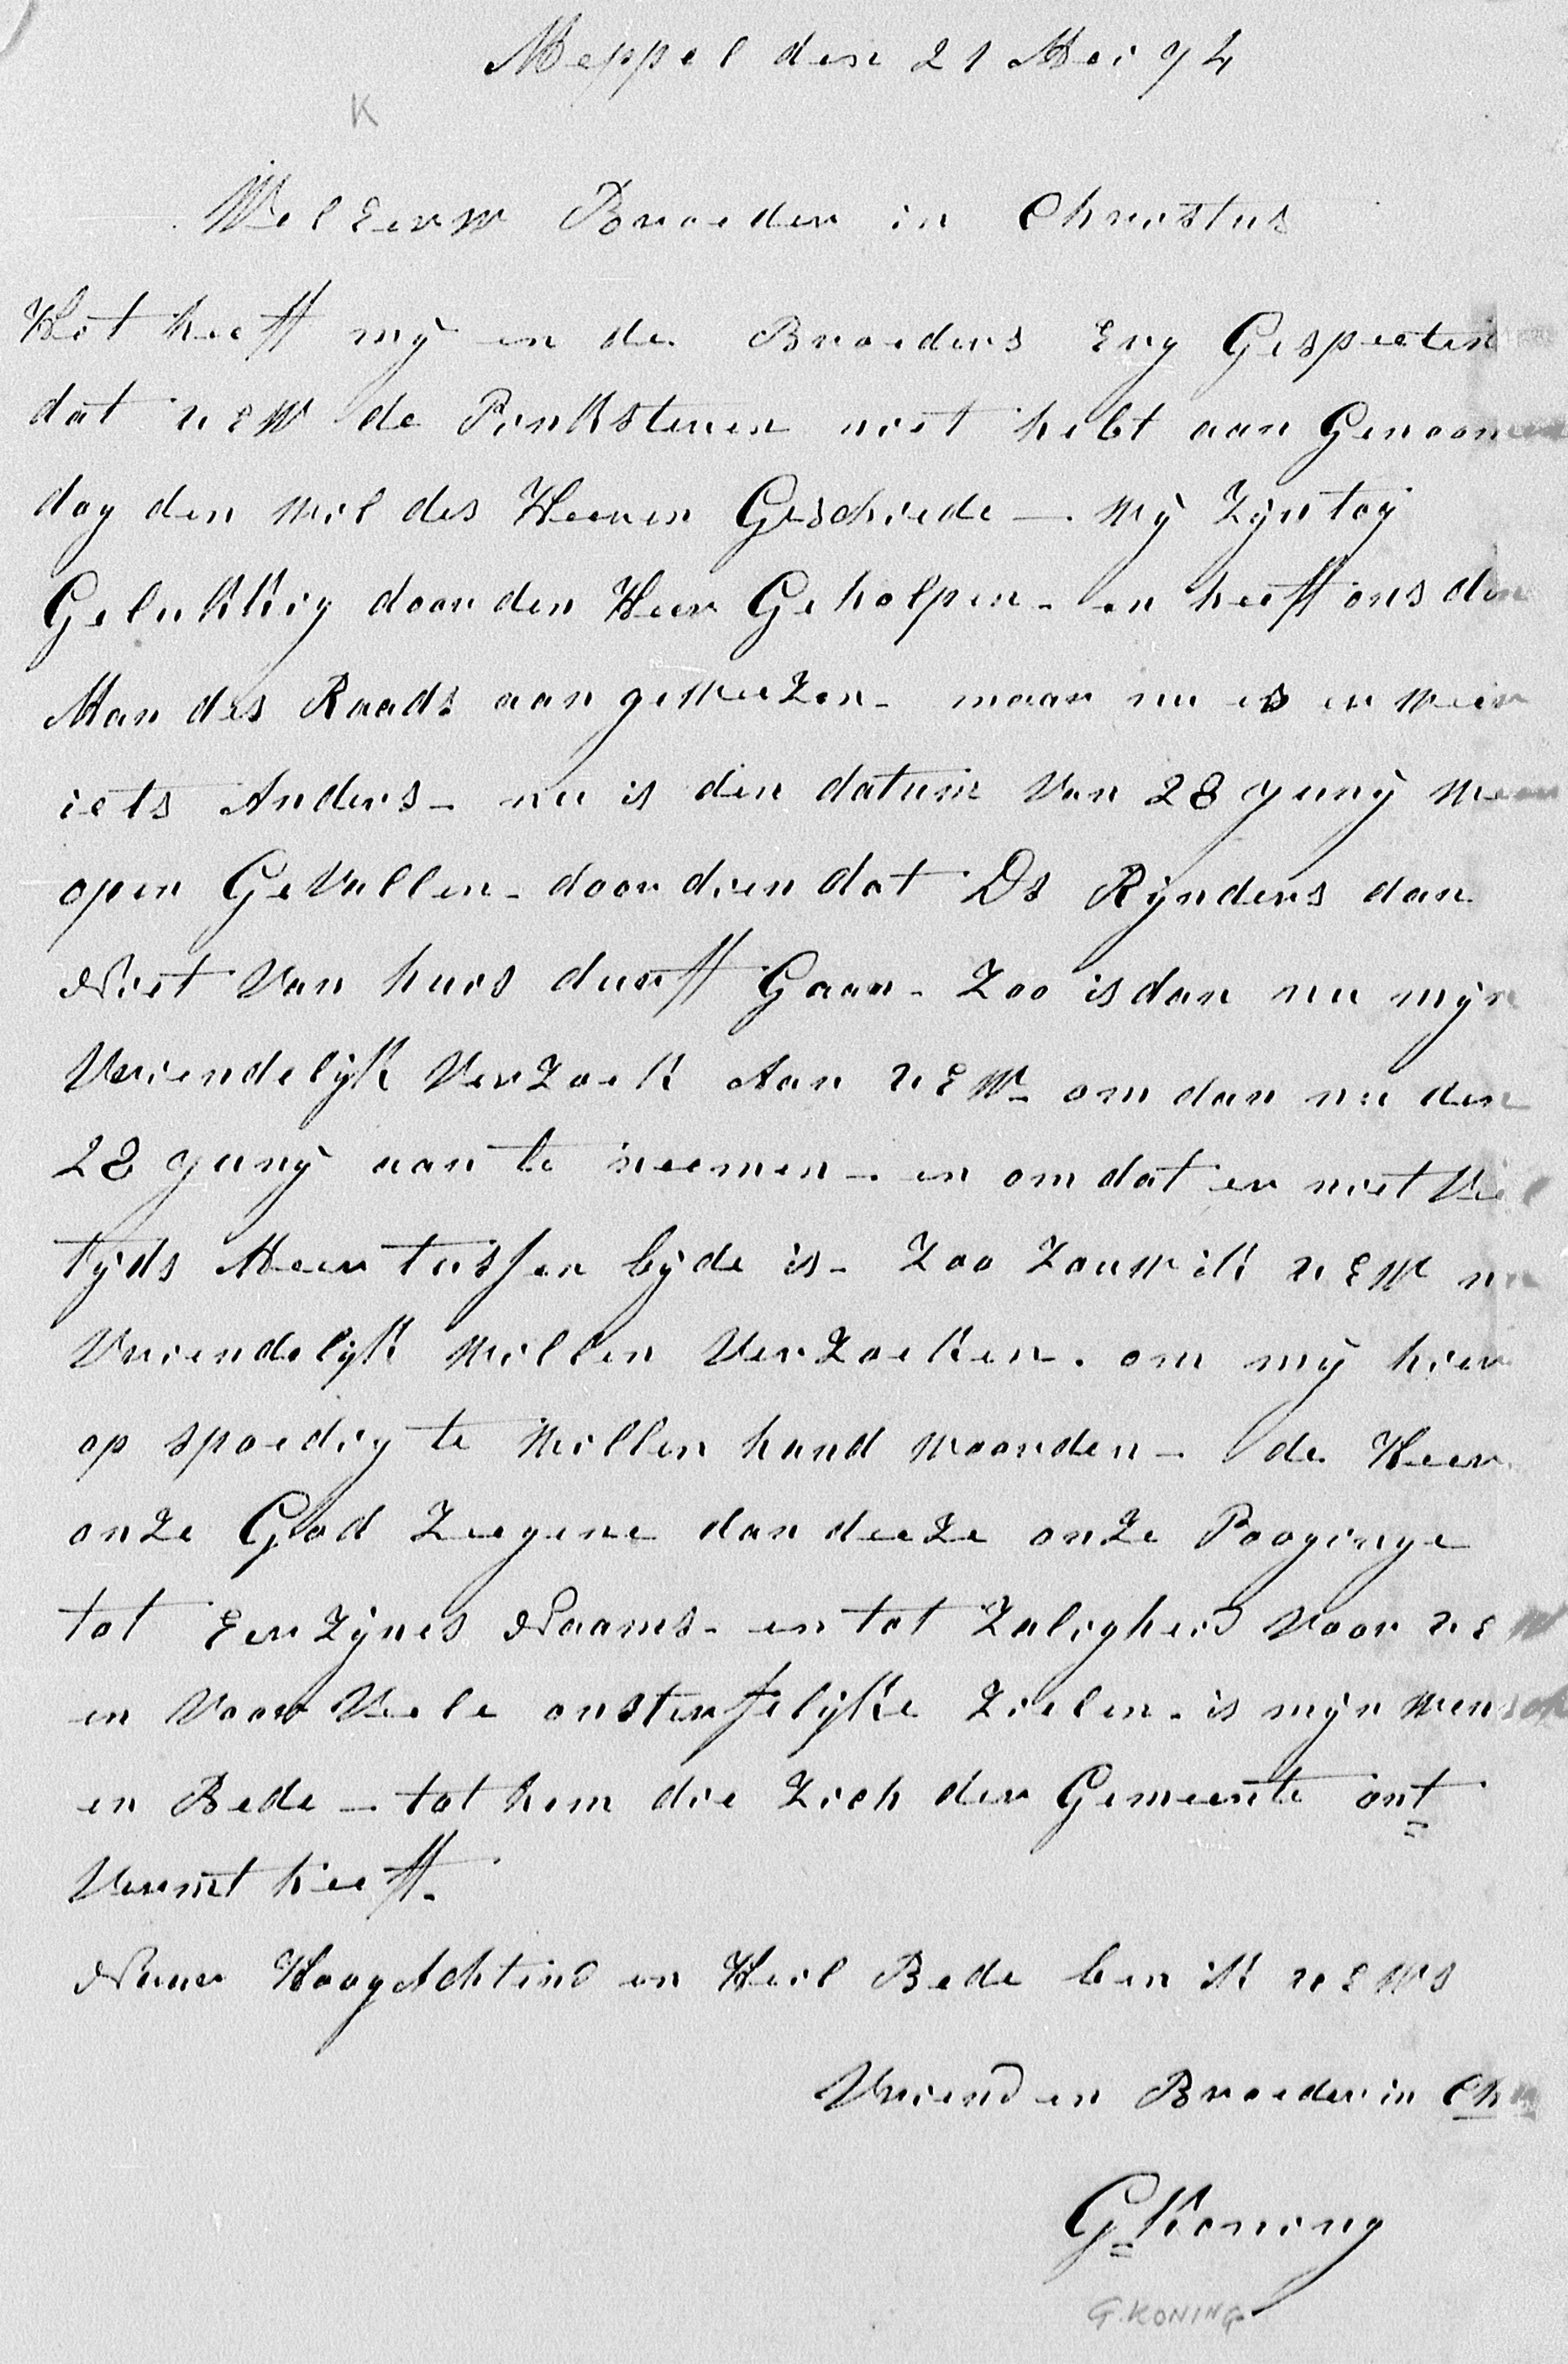 Meppel den 21 Mei 74
K
Wel Eerw Broeder in Christus
Het heeft mij en de Broeders Erg Gespeeten
dat UEW de Pinksteren niet hebt aan Genoomen
dog den wil des Heeren Geschiede — Wij Zijn tog
Gelukkig door den Heer Geholpen - en heeft ons den
Man des Raads aan geweezen - maar nu is er weer
iets Anders - nu is den datum Van 28 Junij weer
open GeVallen - door dien dat Ds Rijnders dan
Niet Van huis durft Gaan - Zoo is dan nu mijn
Vriendelijk VerZoek Aan UEW - om dan nu den
28 Junij aan te neemen - en om dat er niet Veel
tijds Meer tussen bijde is - Zoo Zouw ik UEW nu
Vriendelijk willen VerZoeken. om mij hier
op spoedig te willen hand woorden - de Heer
onze God Zeegene dan deeze onze Pooginge
tot Eer Zijnes Naams - en tot Zaligheid Voor UEW
en Voor Veele onsterfelijke Zielen - is mijn wensch
en Bede — tot hem die Zich der Gemeente ont
Vermt heeft.
Naar HoogAchtind en Heil Bede ben ik UEWs
Vriend en Broeder in Chr
G Koning
G. KONING